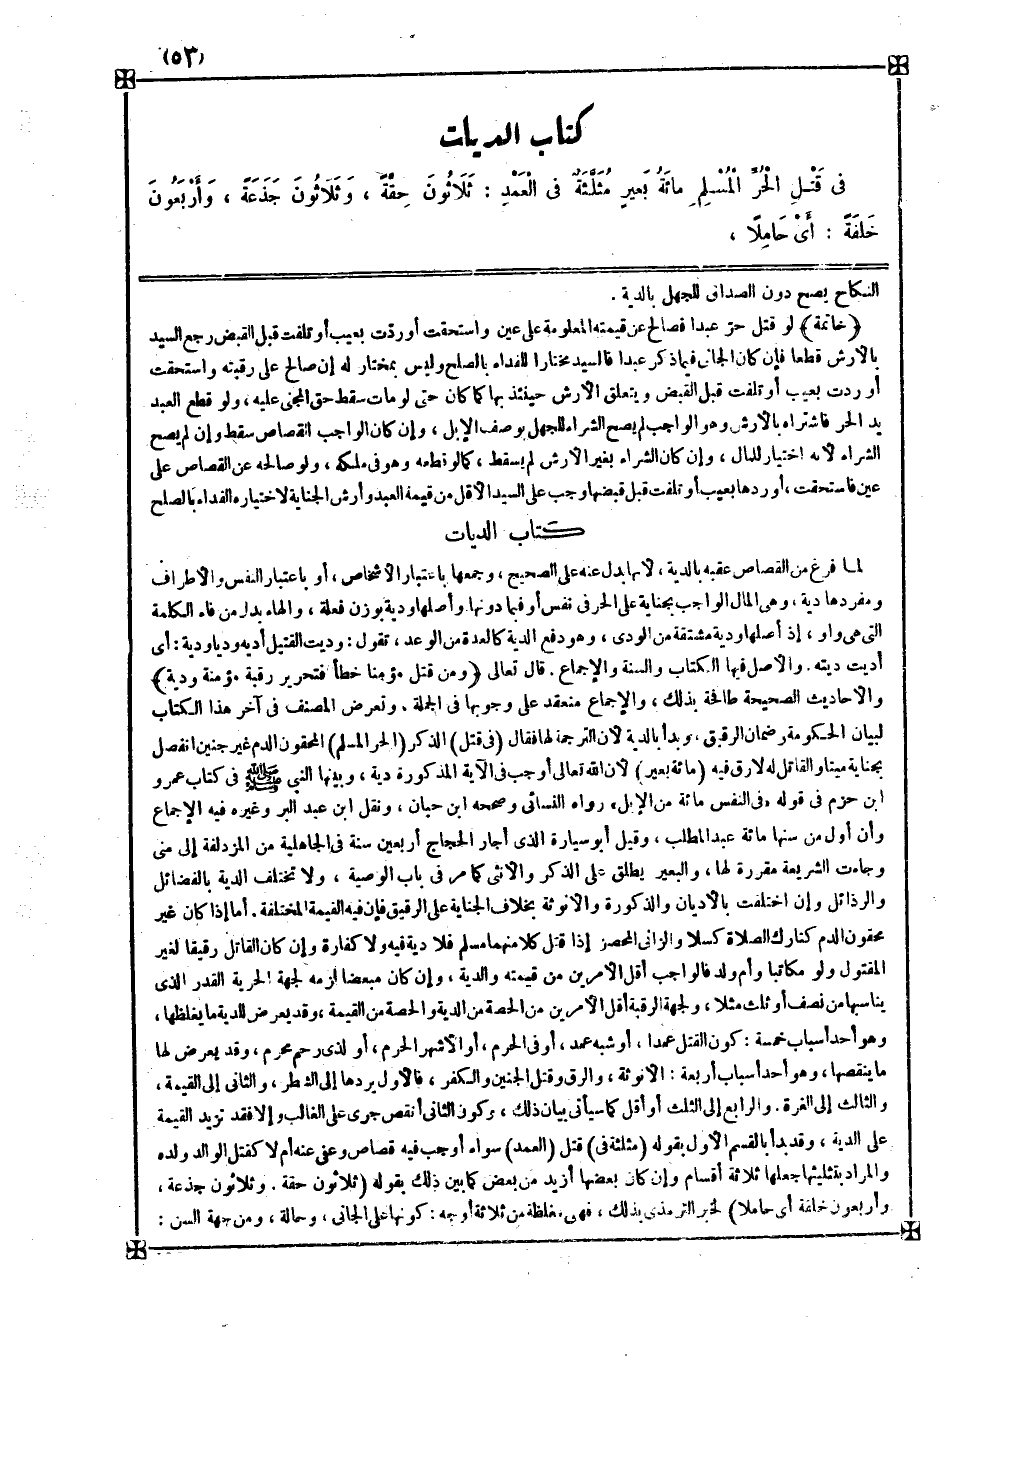 (٥٣)
كتاب الديات
فى قَتْلِ الْحُرِّ الْمُسْلِمِ مِائَةُ بَعِيرٍ مُثَلَّثَةٌ فى الْعَمْدِ : ثَلَاثُونَ حِقَّةً ، وَثَلَاثُونَ جَذَعَةً ، وَأَرْبَعُونَ
خَلِفَةً : أَىْ حَامِلًا ،
النكاح يصح دون الصداق للجهل بالدية .
﴿خاتمة﴾ لو قتل حر عبدا فصالح عن قيمته المعلومة على عين واستحقت أو ردّت بعيب أو تلفت قبل القبض رجع السيد
بالأرش قطعا فإن كان الجانى فيما ذكر عبدا فالسيد مختارا للفداء بالصلح وليس بمختار له إن صالح على رقبته واستحقت
أو ردت بعيب أو تلفت قبل القبض ويتعلق الأرش حينئذ بها كما كان حتى لو مات سقط حق المجنى عليه ، ولو قطع العبد
يد الحر فاشتراه بالأرش وهو الواجب لم يصح الشراء للجهل بوصف الإبل ، وإن كان الواجب القصاص سقط وإن لم يصح
الشراء لأنه اختيار للمال ، وإن كان الشراء بغير الأرش لم يسقط ، كما لو قطعه وهو فى ملكه ، ولو صالحه عن القصاص على
عين فاستحقت ، أو ردها بعيب أو تلفت قبل قبضها وجب على السيد الأقل من قيمة العبد وأرش الجناية لاختياره الفداء بالصلح
كتاب الديات
لما فرغ من القصاص عقبه بالدية ، لأنها بدل عنه على الصحيح ، وجمعها باعتبار الأشخاص ، أو باعتبار النفس والأطراف
ومفردها دية ، وهى المال الواجب بجناية على الحر فى نفس أو فيما دونها وأصلها ودية بوزن فعلة ، والهاء بدل من فاء الكلمة
التى هى واو ، إذ أصلها ودية مشتقة من الودى ، وهو دفع الدية كالعدة من الوعد ، تقول : وديت القتيل أديه وديا ودية : أى
أديت ديته . والأصل فيها الكتاب والسنة والإجماع . قال تعالى ﴿ومن قتل مؤمنا خطأ فتحرير رقبة مؤمنة ودية﴾
والأحاديث الصحيحة طافحة بذلك ، والإجماع منعقد على وجوبها فى الجملة . وتعرض المصنف فى آخر هذا الكتاب
لبيان الحكومة وضمان الرقيق ، وبدأ بالدية لأن الترجمة لها فقال (فى قتل) الذكر (الحر المسلم) المحقون الدم غير جنين انفصل
بجناية ميتا والقاتل له لارق فيه (مائة بعير) لأن الله تعالى أوجب فى الآية المذكورة دية ، وبينها النبى ﷺ فى كتاب عمرو
ابن حزم فى قوله «فى النفس مائة من الإبل» رواه النسائى وصححه ابن حيان ، ونقل ابن عبد البر وغيره فيه الإجماع
وأن أول من سنها مائة عبد المطلب ، وقيل أبو سيارة الذى أجاز الحجاج أربعين سنة فى الجاهلية من المزدلفة إلى منى
وجاءت الشريعة مقررة لها ، والبعير يطلق على الذكر والأنثى كما مر فى باب الوصية ، ولا تختلف الدية بالفضائل
والرذائل وإن اختلفت بالأديان والذكورة والأنوثة بخلاف الجناية على الرقيق فإن فيه القيمة المختلفة . أما إذا كان غير
محقون الدم كتارك الصلاة كسلا والزانى المحصن إذا قتل كلا منهما مسلم فلا دية فيه ولا كفارة وإن كان القاتل رقيقا لغير
المقتول ولو مكاتبا وأم ولد فالواجب أقل الأمرين من قيمته والدية ، وإن كان مبعضا لزمه لجهة الحرية القدر الذى
يناسبها من نصف أو ثلث مثلا ، ولجهة الرقبة أقل الأمرين من الحصة من الدية والحصة من القيمة ، وقد يعرض للدية ما يغلظها ،
وهو أحد أسباب خمسة : كون القتل عمدا ، أو شبه عمد ، أو فى الحرم ، أو الأشهر الحرم ، أو لذى رحم محرم ، وقد يعرض لها
ما ينقصها ، وهو أحد أسباب أربعة : الأنوثة ، والرق وقتل الجنين والكفر ، فالأول يردها إلى الشطر ، والثانى إلى القيمة ،
والثالث إلى الغرة . والرابع إلى الثلث أو أقل كما سيأتى بيان ذلك ، وكون الثانى أنقص جرى على الغالب وإلا فقد تزيد القيمة
على الدية ، وقد بدأ بالقسم الأول بقوله (مثلثة فى) قتل (العمد) سواء أوجب فيه قصاص وعفى عنه أم لا كقتل الوالد ولده
والمراد بتثليثها جعلها ثلاثة أقسام وإن كان بعضها أزيد من بعض كما بين ذلك بقوله (ثلاثون حقة . وثلاثون جذعة ،
وأربعون خلفة أى حاملا) لخبر الترمذى بذلك ، فهى مغلظة من ثلاثة أوجه : كونها على الجانى ، وحالة ، ومن جهة السن :